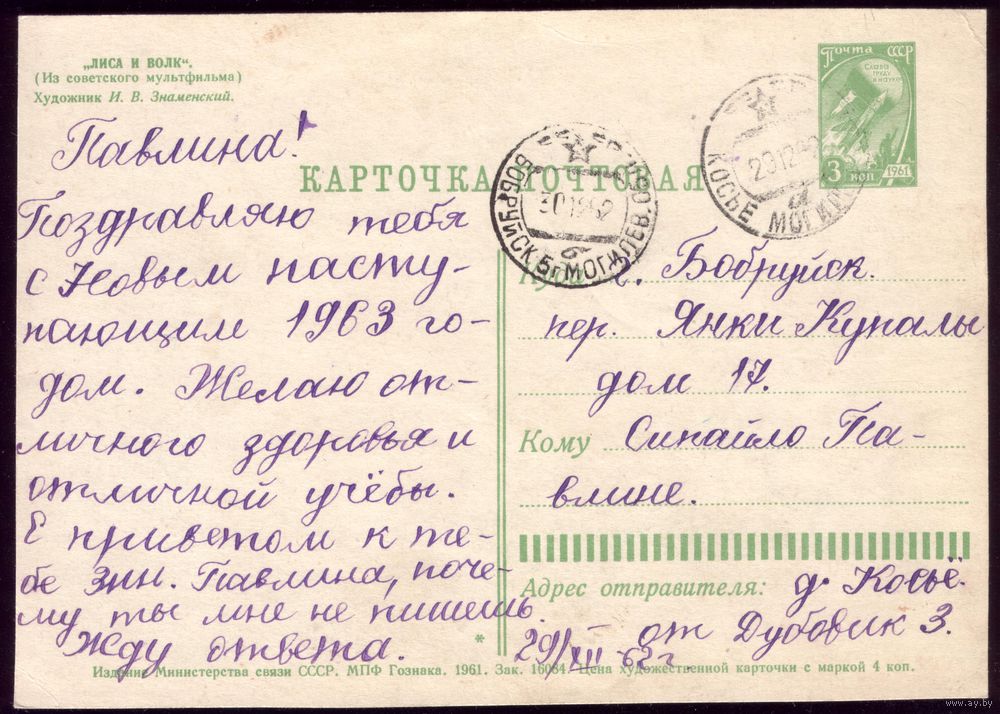 „ЛИСА И ВОЛК“.
(Из советского мультфильма)
Художник И. В. Знаменский.
Павлина!
Поздравляю тебя
с Новым насту-
пающим 1963 го-
дом. Желаю от-
личного здоровья и
отличной учёбы.
С приветом к те-
бе Зин. Павлина, поче-
му ты мне не пишешь.
Жду ответа.
КАРТОЧКА ПОЧТОВАЯ
Почта СССР
Слава
труду
и науке
3 коп 1961
КОСЬЕ МОГИЛ
БОБРУЙСК 5 г. МОГИЛЕВ. ОБ
301262
б
Куда г. Бобруйск.
пер. Янки Купалы
дом 17.
Кому Сипайло Па-
влине.
Адрес отправителя: д. Косьё.
от Дубовик З.
29/XII-62 г.
*
Издание Министерства связи СССР. МПФ Гознака. 1961. Зак. 16084. Цена художественной карточки с маркой 4 коп.
www.ay.by